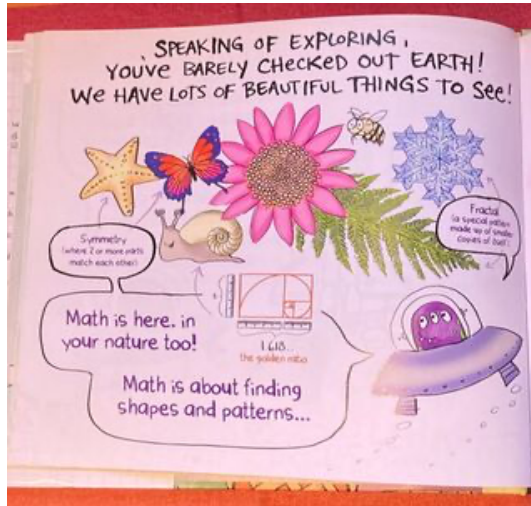 SPEAKING OF EXPLORING,
YOU'VE BARELY CHECKED OUT EARTH!
WE HAVE LOTS OF BEAUTIFUL THINGS TO SEE!
Symmetry
(where 2 or more parts
match each other)
Fractal
(a special pattern
made up of smaller
copies of itself)
1
1.618...
the golden ratio
Math is here, in
your nature too!
Math is about finding
shapes and patterns...